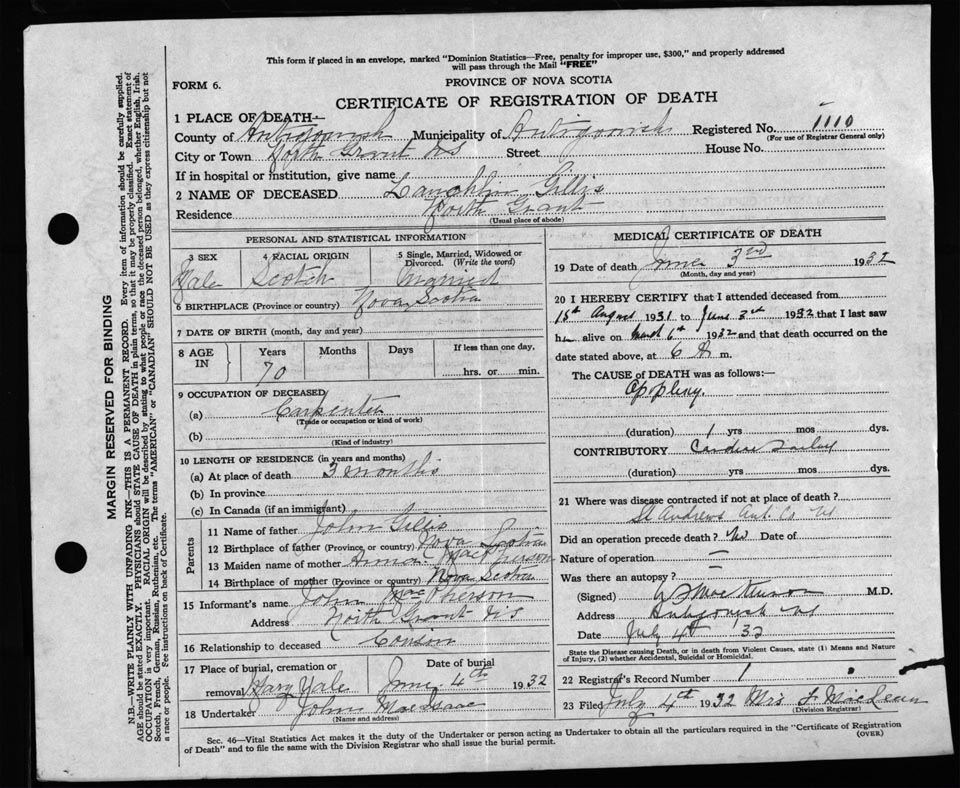 This form if placed in an envelope, marked "Dominion Statistics—Free, penalty for improper use, $300," and properly addressed
will pass through the Mail "FREE"
FORM 6.
PROVINCE OF NOVA SCOTIA
CERTIFICATE OF REGISTRATION OF DEATH
1 PLACE OF DEATH:—
County of Antigonish Municipality of Antigonish Registered No. 1110
(For use of Registrar General only)
City or Town North Grant NS Street House No.
If in hospital or institution, give name
2 NAME OF DECEASED Lauchlin Gillis
Residence North Grant
(Usual place of abode)
PERSONAL AND STATISTICAL INFORMATION
3 SEX 4 RACIAL ORIGIN 5 Single, Married, Widowed or
Divorced. (Write the word)
Male Scotch Married
6 BIRTHPLACE (Province or country) Nova Scotia
7 DATE OF BIRTH (month, day and year)
8 AGE IN Years Months Days If less than one day,
70 hrs. or min.
9 OCCUPATION OF DECEASED
(a) Carpenter
(Trade or occupation or kind of work)
(b)
(Kind of industry)
10 LENGTH OF RESIDENCE (in years and months)
(a) At place of death 3 months
(b) In province
(c) In Canada (if an immigrant)
Parents
11 Name of father John Gillis
12 Birthplace of father (Province or country) Nova Scotia
13 Maiden name of mother MacPherson
14 Birthplace of mother (Province or country) Nova Scotia
15 Informant's name John MacPherson
Address North Grant NS
16 Relationship to deceased Couson
17 Place of burial, cremation or Date of burial
removal June 4th 1932
18 Undertaker John MacIsaac
(Name and address)
MEDICAL CERTIFICATE OF DEATH
19 Date of death June 3rd 1932
(Month, day and year)
20 I HEREBY CERTIFY that I attended deceased from
15th August 1931 to June 3rd 1932 that I last saw
him alive on 1932 and that death occurred on
date stated above, at 6 m.
The CAUSE of DEATH was as follows:—
Apoplexy.
(duration) 1 yrs mos dys.
CONTRIBUTORY
(duration) yrs mos dys.
21 Where was disease contracted if not at place of death?
St Andrews Ant. Co NS
Did an operation precede death? No Date of
Nature of operation —
Was there an autopsy? —
(Signed) M.D.
Address Antigonish NS
Date July 4th 32
State the Disease causing Death, or in death from Violent Causes, state (1) Means and Nature
of Injury, (2) whether Accidental, Suicidal or Homicidal.
22 Registrar's Record Number 1
23 Filed July 4th 1932 Mrs F MacLean
(Division Registrar)
Sec. 46—Vital Statistics Act makes it the duty of the Undertaker or person acting as Undertaker to obtain all the particulars required in the "Certificate of Registration
of Death" and to file the same with the Division Registrar who shall issue the burial permit.
(OVER)
MARGIN RESERVED FOR BINDING
N.B.—WRITE PLAINLY WITH UNFADING INK—THIS IS A PERMANENT RECORD. Every item of information should be carefully supplied.
AGE should be stated EXACTLY. PHYSICIANS should STATE CAUSE OF DEATH in plain terms, so that it may be properly classified. Exact statement of
OCCUPATION is very important. RACIAL ORIGIN will be described by stating to what people or race the deceased person belonged, whether English, Irish,
Scotch, French, German, Russian, Ruthenian, etc. The terms "AMERICAN" or "CANADIAN" SHOULD NOT BE USED as they express citizenship but not
a race or people. See instructions on back of Certificate.